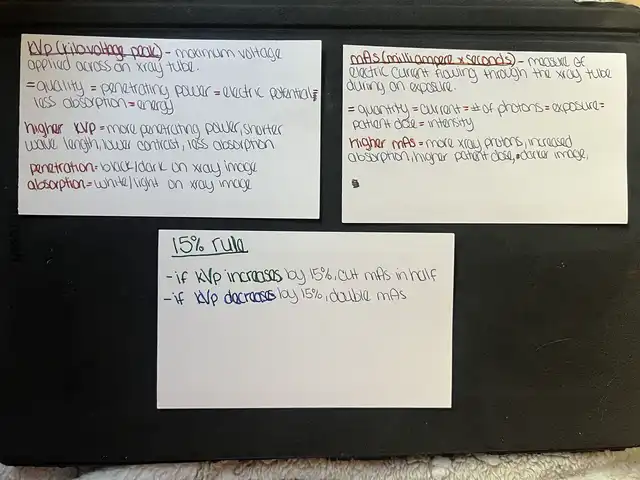 KVp (kilovoltage peak) - maximum voltage
applied across an xray tube.
= quality = penetrating power = electric potential =
less absorption = energy
higher KVp = more penetrating power, shorter
wave length, lower contrast, less absorption
penetration = black/dark on xray image
absorption = white/light on xray image
mAs (milliampere x seconds) - measure of
electric current flowing through the xray tube
during an exposure.
= quantity = current = # of photons = exposure =
patient dose = intensity
higher mAs = more xray protons, increased
absorption, higher patient dose, darker image,
15% rule
- if KVp increases by 15%, cut mAs in half
- if KVp decreases by 15%, double mAs